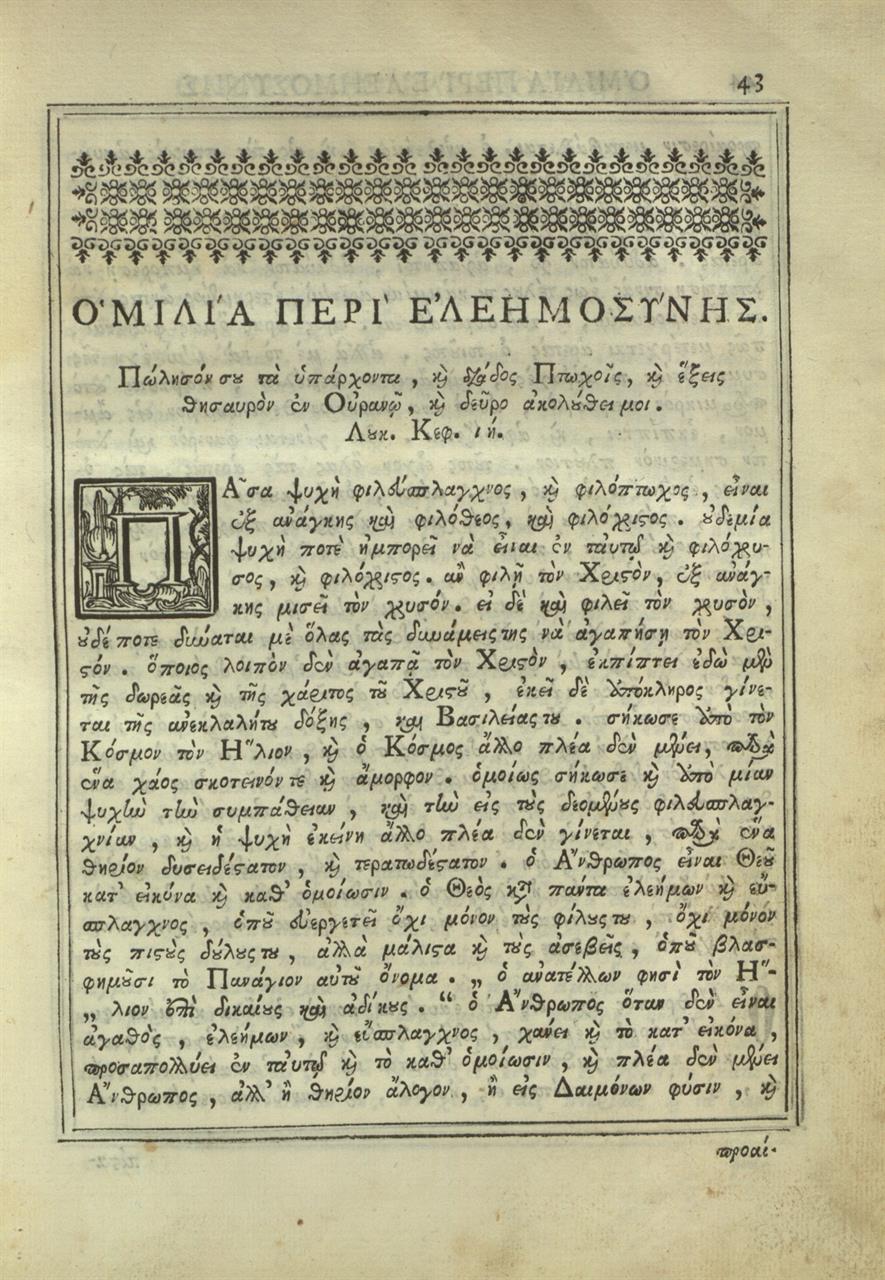 43
ὉΜΙΛΊΑ ΠΕΡῚ ἘΛΕΗΜΟΣΎΝΗΣ.
Πώλησόν σου τὰ ὑπάρχοντα, καὶ διάδος Πτωχοῖς, καὶ ἕξεις
θησαυρὸν ἐν Οὐρανῷ, καὶ δεῦρο ἀκολούθει μοι.
Λουκ. Κεφ. ιή.
ΠΑ῀σα ψυχὴ φιλεύσπλαγχνος, καὶ φιλόπτωχος, εἶναι
ἐξ ἀνάγκης καὶ φιλόθεος, καὶ φιλόχριστος. οὐδεμία
ψυχὴ ποτὲ ἠμπορεῖ νὰ εἶναι ἐν ταὐτῷ καὶ φιλόχρυ-
σος, καὶ φιλόχριστος. ἂν φιλῇ τὸν Χριστὸν, ἐξ ἀνάγ-
κης μισεῖ τὸν χρυσόν. εἰ δὲ καὶ φιλεῖ τὸν χρυσὸν,
οὐδέ ποτε δύναται μὲ ὅλας τὰς δυνάμεις της νὰ ἀγαπήσῃ τὸν Χρι-
στόν. ὅποιος λοιπὸν δὲν ἀγαπᾷ τὸν Χριστὸν, ἐκπίπτει ἐδὼ μὲν
τῆς δωρεᾶς καὶ τῆς χάριτος τοῦ Χριστοῦ, ἐκεῖ δὲ ἀπόκληρος γίνε-
ται τῆς ἀνεκλαλήτου δόξης, καὶ Βασιλείας του. σήκωσε ἀπὸ τὸν
Κόσμον τὸν Ἥλιον, καὶ ὁ Κόσμος ἄλλο πλέα δὲν μένει, παρὰ
ἕνα χάος σκοτεινόν τε καὶ ἄμορφον. ὁμοίως σήκωσε καὶ ἀπὸ μίαν
ψυχὴν τὴν συμπάθειαν, καὶ τὴν εἰς τοὺς δεομένους φιλευσπλαγ-
χνίαν, καὶ ἡ ψυχὴ ἐκείνη ἄλλο πλέα δὲν γίνεται, παρὰ ἕνα
θηρίον δυσειδέστατον, καὶ τερατωδέστατον. ὁ Ἄνθρωπος εἶναι Θεοῦ
κατ' εἰκόνα καὶ καθ' ὁμοίωσιν. ὁ Θεὸς κατὰ πάντα ἐλεήμων καὶ εὔ-
σπλαγχνος, ὁποῦ εὐεργετεῖ ὄχι μόνον τοὺς φίλους του, ὄχι μόνον
τοὺς πιστοὺς δούλους του, ἀλλὰ μάλιστα καὶ τοὺς ἀσεβεῖς, ὁποῦ βλασ-
φημοῦσι τὸ Πανάγιον αὐτοῦ ὄνομα. „ ὁ ἀνατέλλων φησὶ τὸν Ἥ-
„ λιον ἐπὶ δικαίους καὶ ἀδίκους. “ ὁ Ἄνθρωπος ὅταν δὲν εἶναι
ἀγαθὸς, ἐλεήμων, καὶ εὔσπλαγχνος, χάνει καὶ τὸ κατ' εἰκόνα,
προσαπολλύει ἐν ταὐτῷ καὶ τὸ καθ' ὁμοίωσιν, καὶ πλέα δὲν μένει
Ἄνθρωπος, ἀλλ' ἢ θηρίον ἄλογον, ἢ εἰς Δαιμόνων φύσιν, καὶ
προαί-